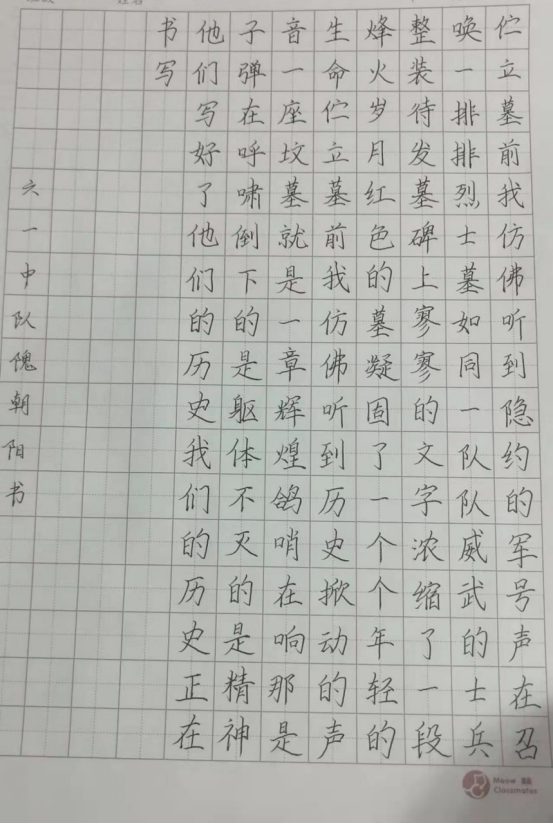 伫立墓前我仿佛听到隐约的军号声在召
唤一排排烈士墓如同一队队威武的士兵
整装待发墓碑上寥寥的文字浓缩了一段
烽火岁月红色的墓凝固了一个个年轻的
生命伫立墓前我仿佛听到历史掀动的声
音一座坟墓就是一章辉煌鸽哨在响那是
子弹在呼啸倒下的是躯体不灭的是精神
他们写好了他们的历史我们的历史正在
书写
六一中队隗朝阳书
Meow
Classmates